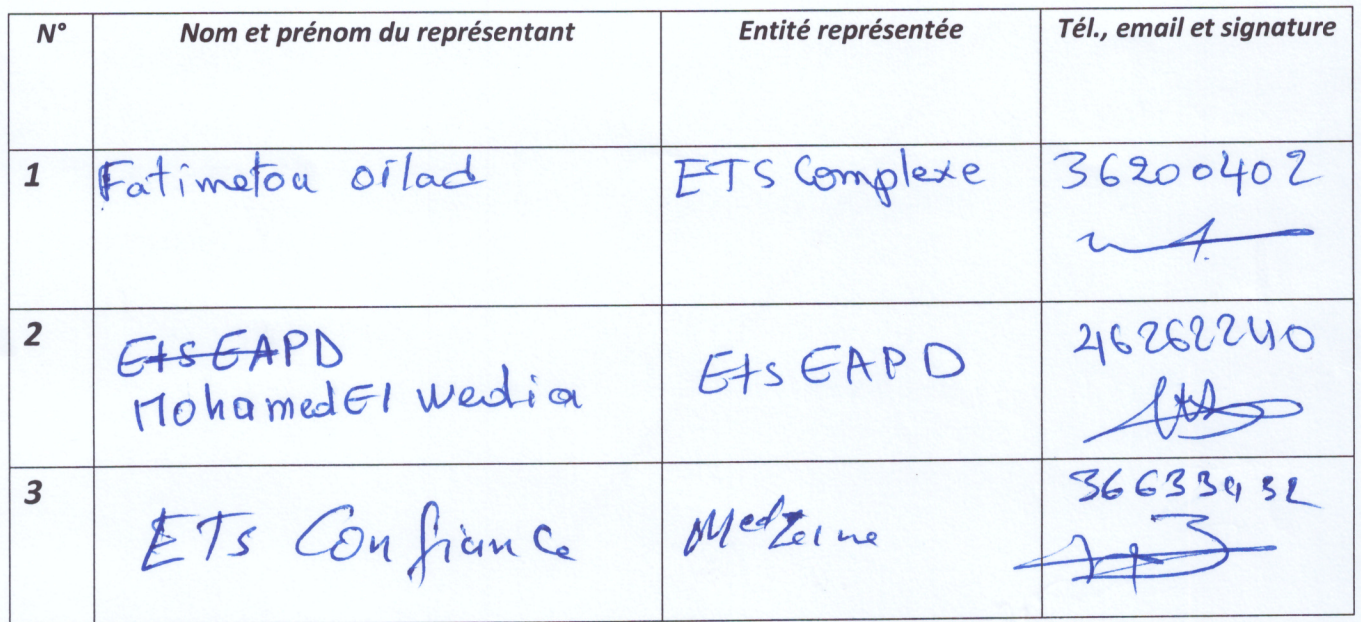 N° Nom et prénom du représentant Entité représentée Tél., email et signature
1 Fatimetou oilad ETS Complexe 36200402
2 Ets EAPD Ets EAPD 46262240
Mohamed El Wedia
3 ETs Confiance Med Zeine 36633932